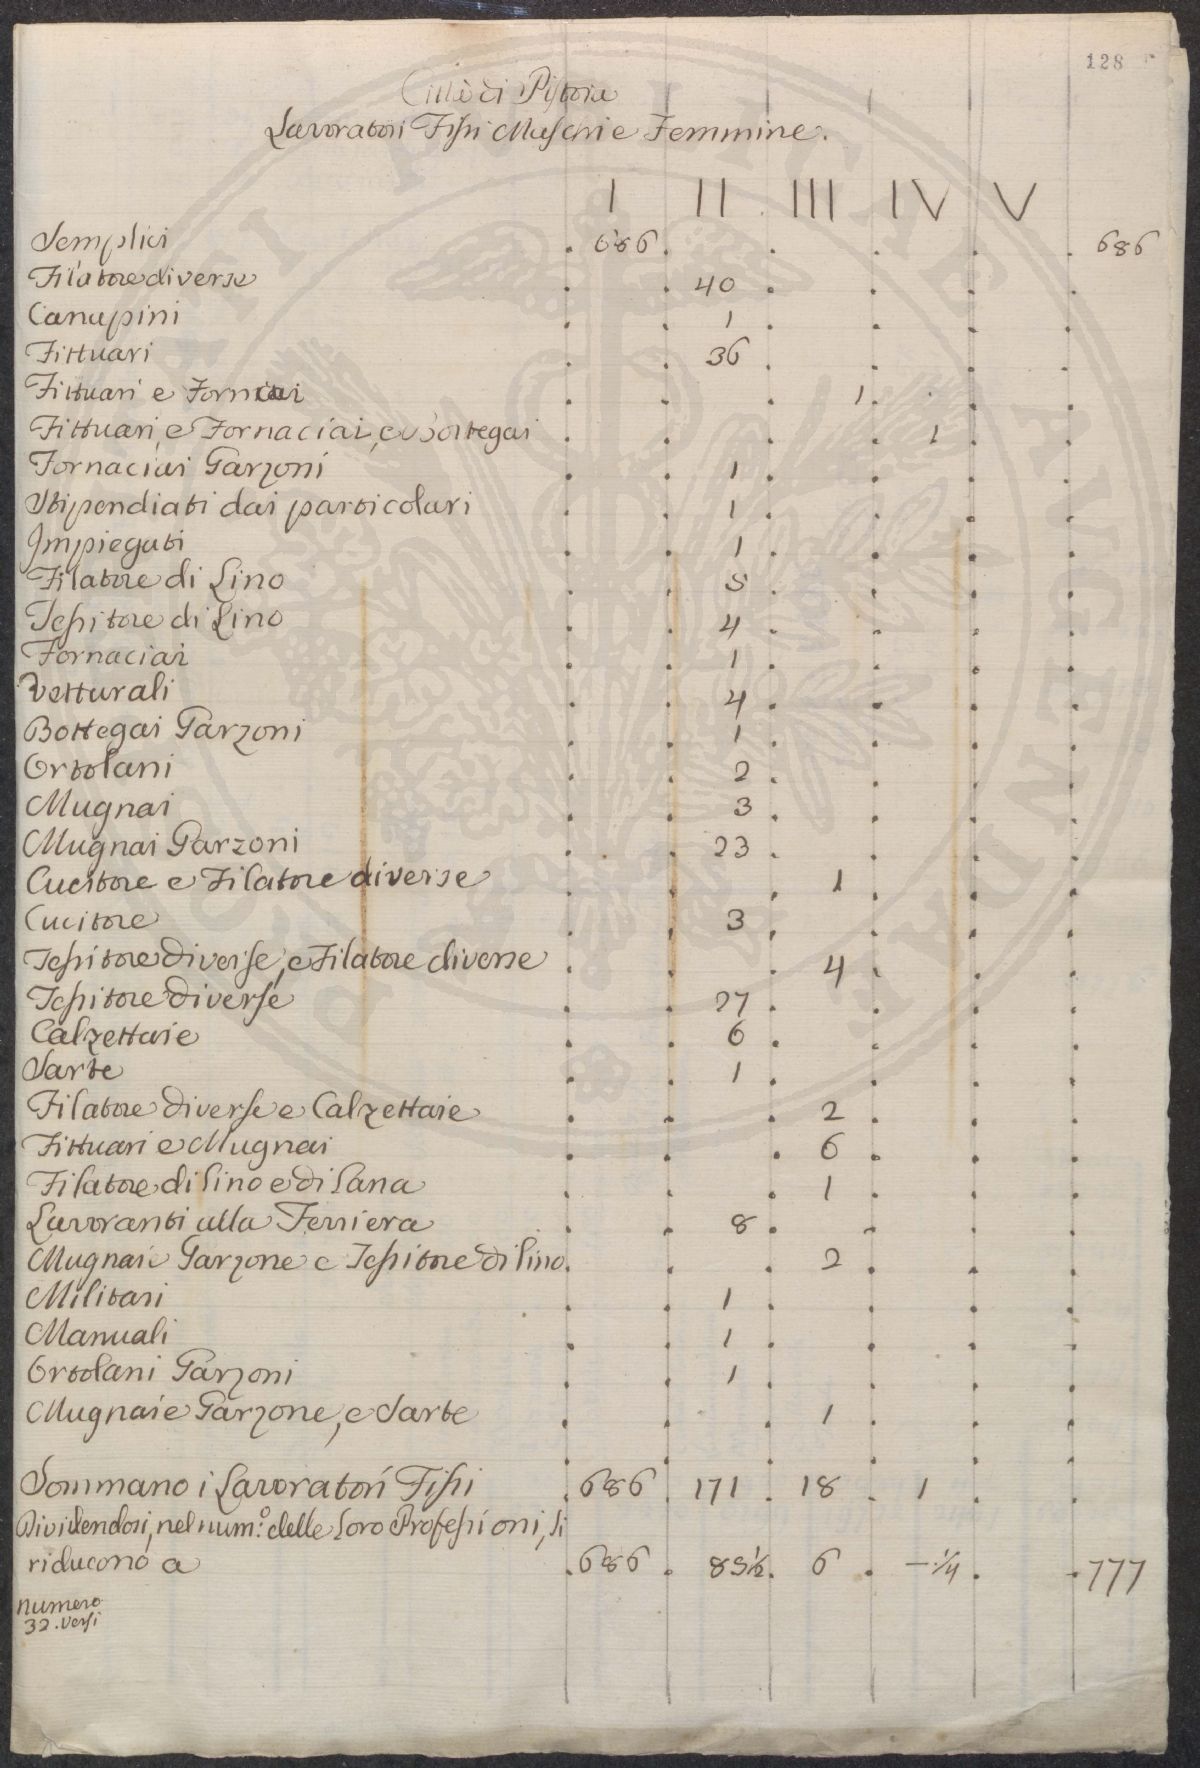 128
Città di Pistoia
Lavoratori Fissi Maschi e Femmine.
I II III IV V
Semplici 686 686
Filatore diverse 40
Canapini 1
Fittuari 36
Fittuari e Fornaciai 1
Fittuari, e Fornaciai, e Bottegai 1
Fornaciai Garzoni 1
Stipendiati dai particolari 1
Impiegati 1
Filatore di Lino 5
Tessitore di Lino 4
Fornaciai 1
Vetturali 4
Bottegai Garzoni 1
Ortolani 2
Mugnai 3
Mugnai Garzoni 23
Cucitore e Filatore diverse 1
Cucitore 3
Tessitore diverse, e Filatore diverse 4
Tessitore diverse 27
Calzettaie 6
Sarte 1
Filatore diverse e Calzettaie 2
Fittuari e Mugnai 6
Filatore di lino e di lana 1
Lavoranti alla Ferriera 8
Mugnaie Garzone e Tessitore di lino 2
Militari 1
Manuali 1
Ortolani Garzoni 1
Mugnaie Garzone, e Sarte 1
Sommano i Lavoratori Fissi 686 171 18 1
Dividendosi, nel num.º delle loro Professioni, si
riducono a 686 85½ 6 —¼ 777
numero
32. versi